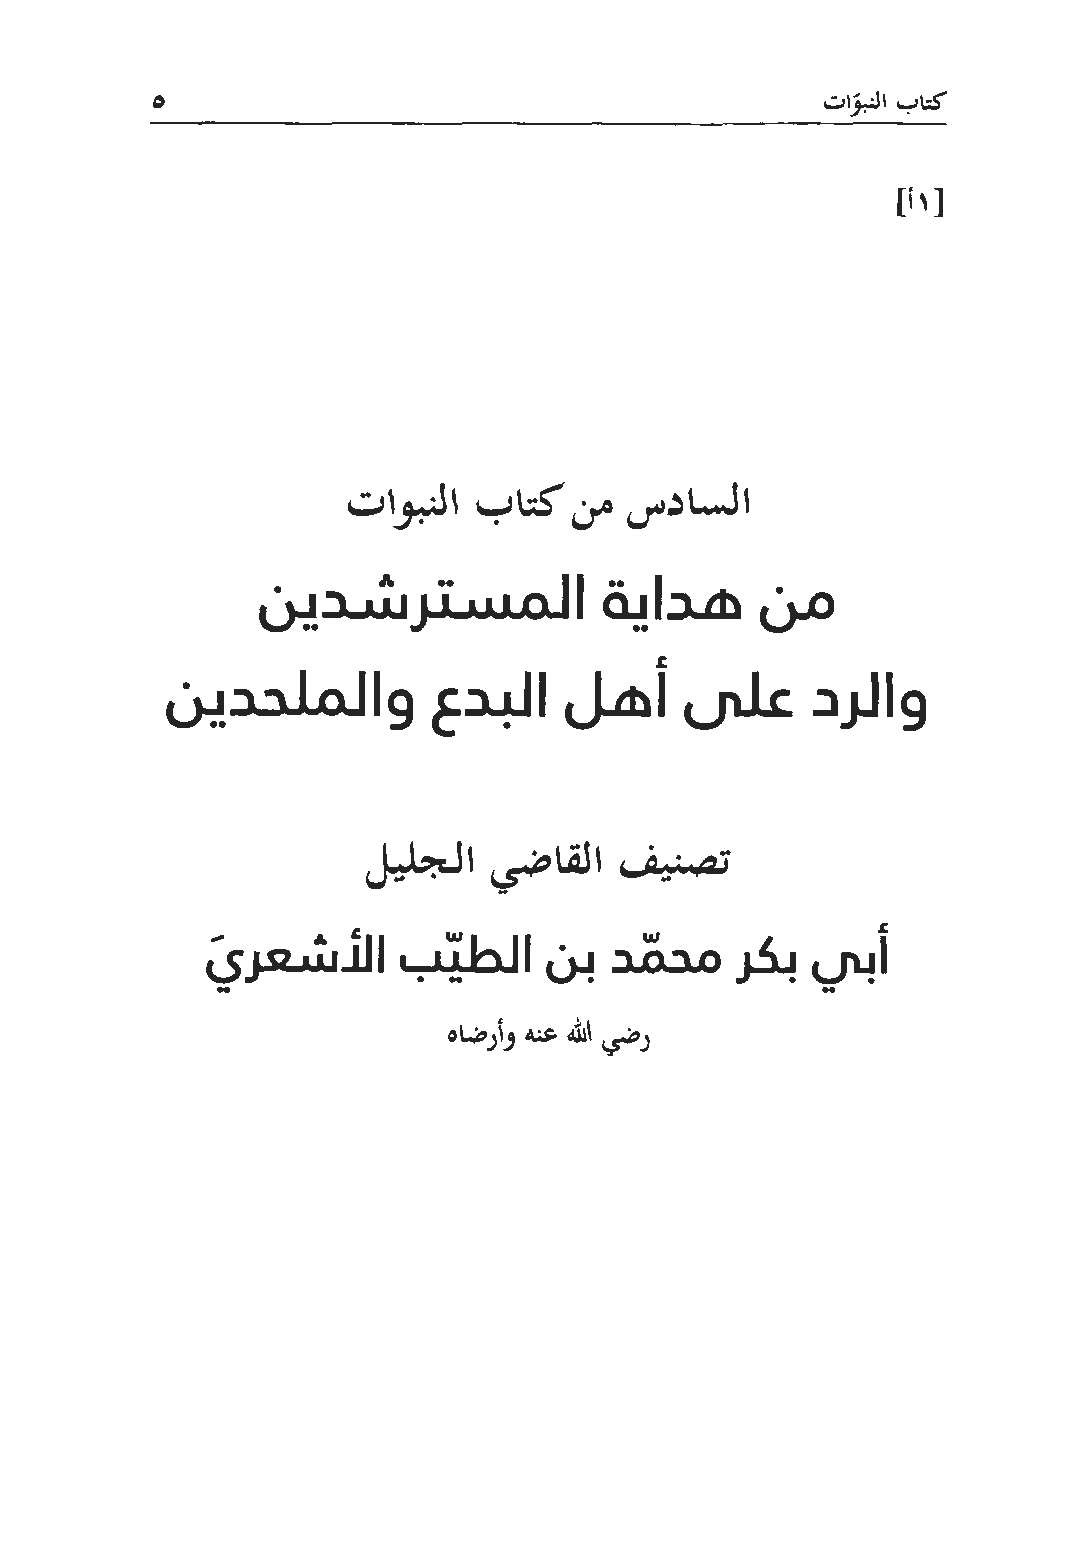 كتاب النبوّات ٥
[١أ]
السادس من كتاب النبوات
من هداية المسترشدين
والرد على أهل البدع والملحدين
تصنيف القاضي الجليل
أبي بكر محمّد بن الطيّب الأشعريَ
رضي الله عنه وأرضاه